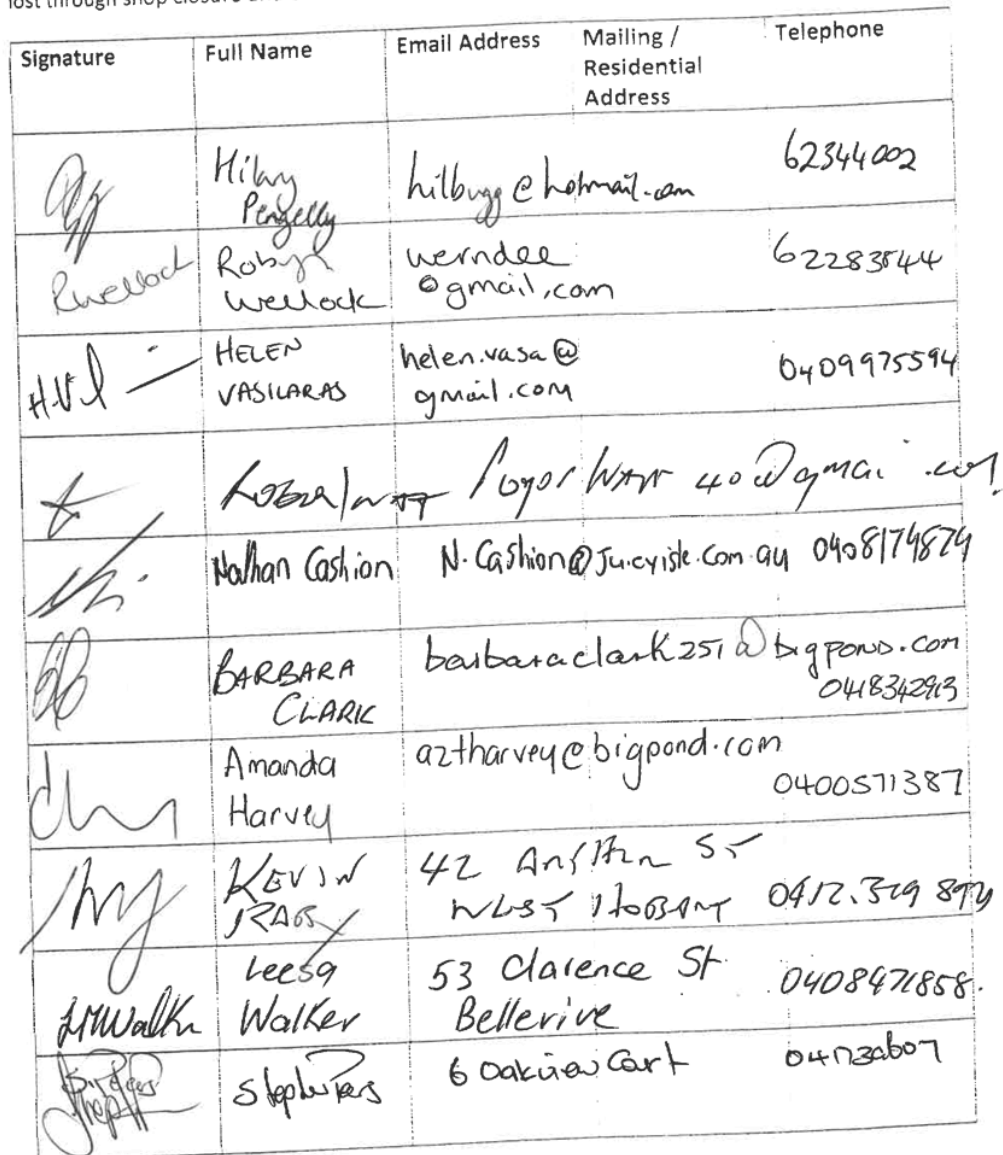 lost through shop closure
Signature Full Name Email Address Mailing / Residential Address Telephone
Hilary Pengelly hilbugg@hotmail.com 62344002
Rwellock Robyn Wellock werndee @gmail.com 62283544
HELEN VASILARAS helen.vasa@ gmail.com 0409975594
40@gmai .com
Nathan Cashion N.Cashion@Juicyisle.com.au 0408174874
BARBARA CLARK barbaraclark251@bigpond.com 0418342913
Amanda Harvey aztharvey@bigpond.com 0400571387
KEVIN 42 St WEST HOBART
LMWalker Leesa Walker 53 Clarence St Bellerive 0408471858.
6 Oakview Court